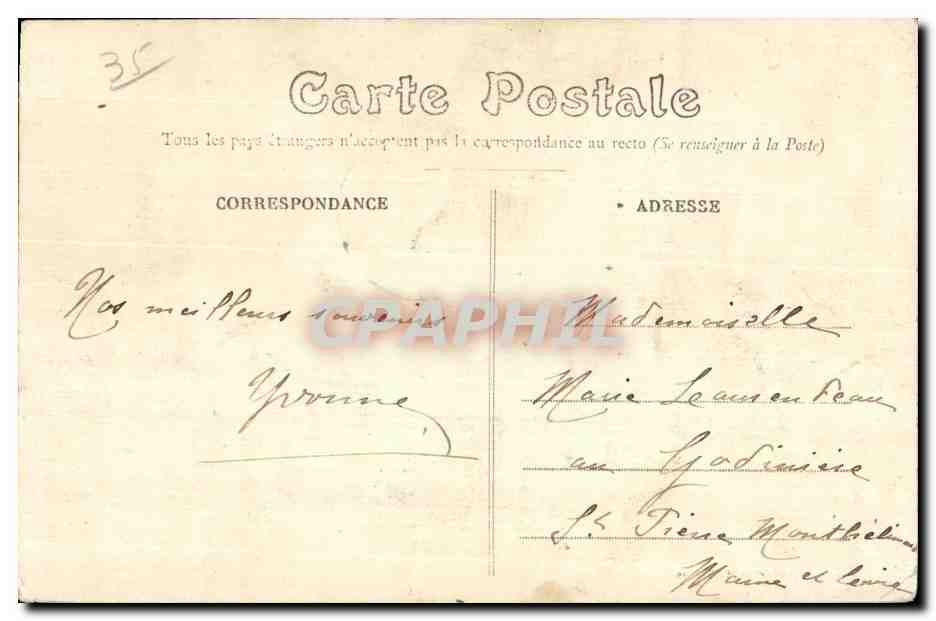 35
Carte Postale
Tous les pays étrangers n'acceptent pas la correspondance au recto (Se renseigner à la Poste)
CORRESPONDANCE
ADRESSE
Nos meilleurs souvenirs
Yvonne
CPAPHIL
Mademoiselle
Marie
au Godinière
St Pierre Montlimart
Maine et Loire